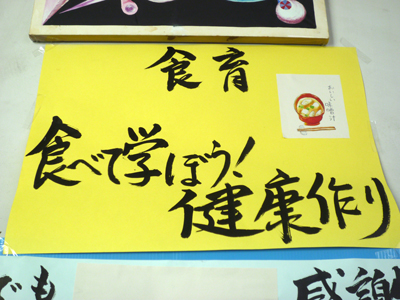 食育
おいしい味噌汁
食べて学ぼう!
健康作り
でも
感謝